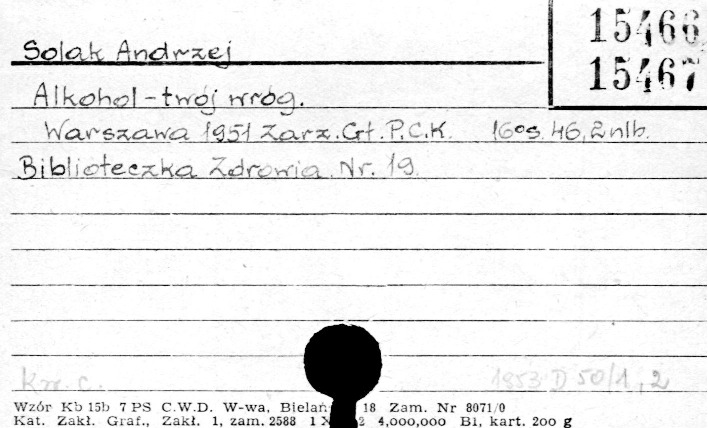 15466
15467
Solak Andrzej
Alkohol - twój wróg.
Warszawa 1951 Zarz. Gł. P.C.K. 16os. 46, 2 nlb.
Biblioteczka Zdrowia Nr. 19.
1853 D 50/1, 2
Wzór Kb 15b 7 PS C.W.D. W-wa, 18 Zam. Nr 8071/0
Kat. Zakł. Graf., Zakł. 1, zam. 2588 4,000,000 B1, kart. 200 g